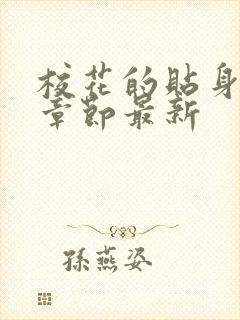 校花的貼身
章節最新
孫燕姿